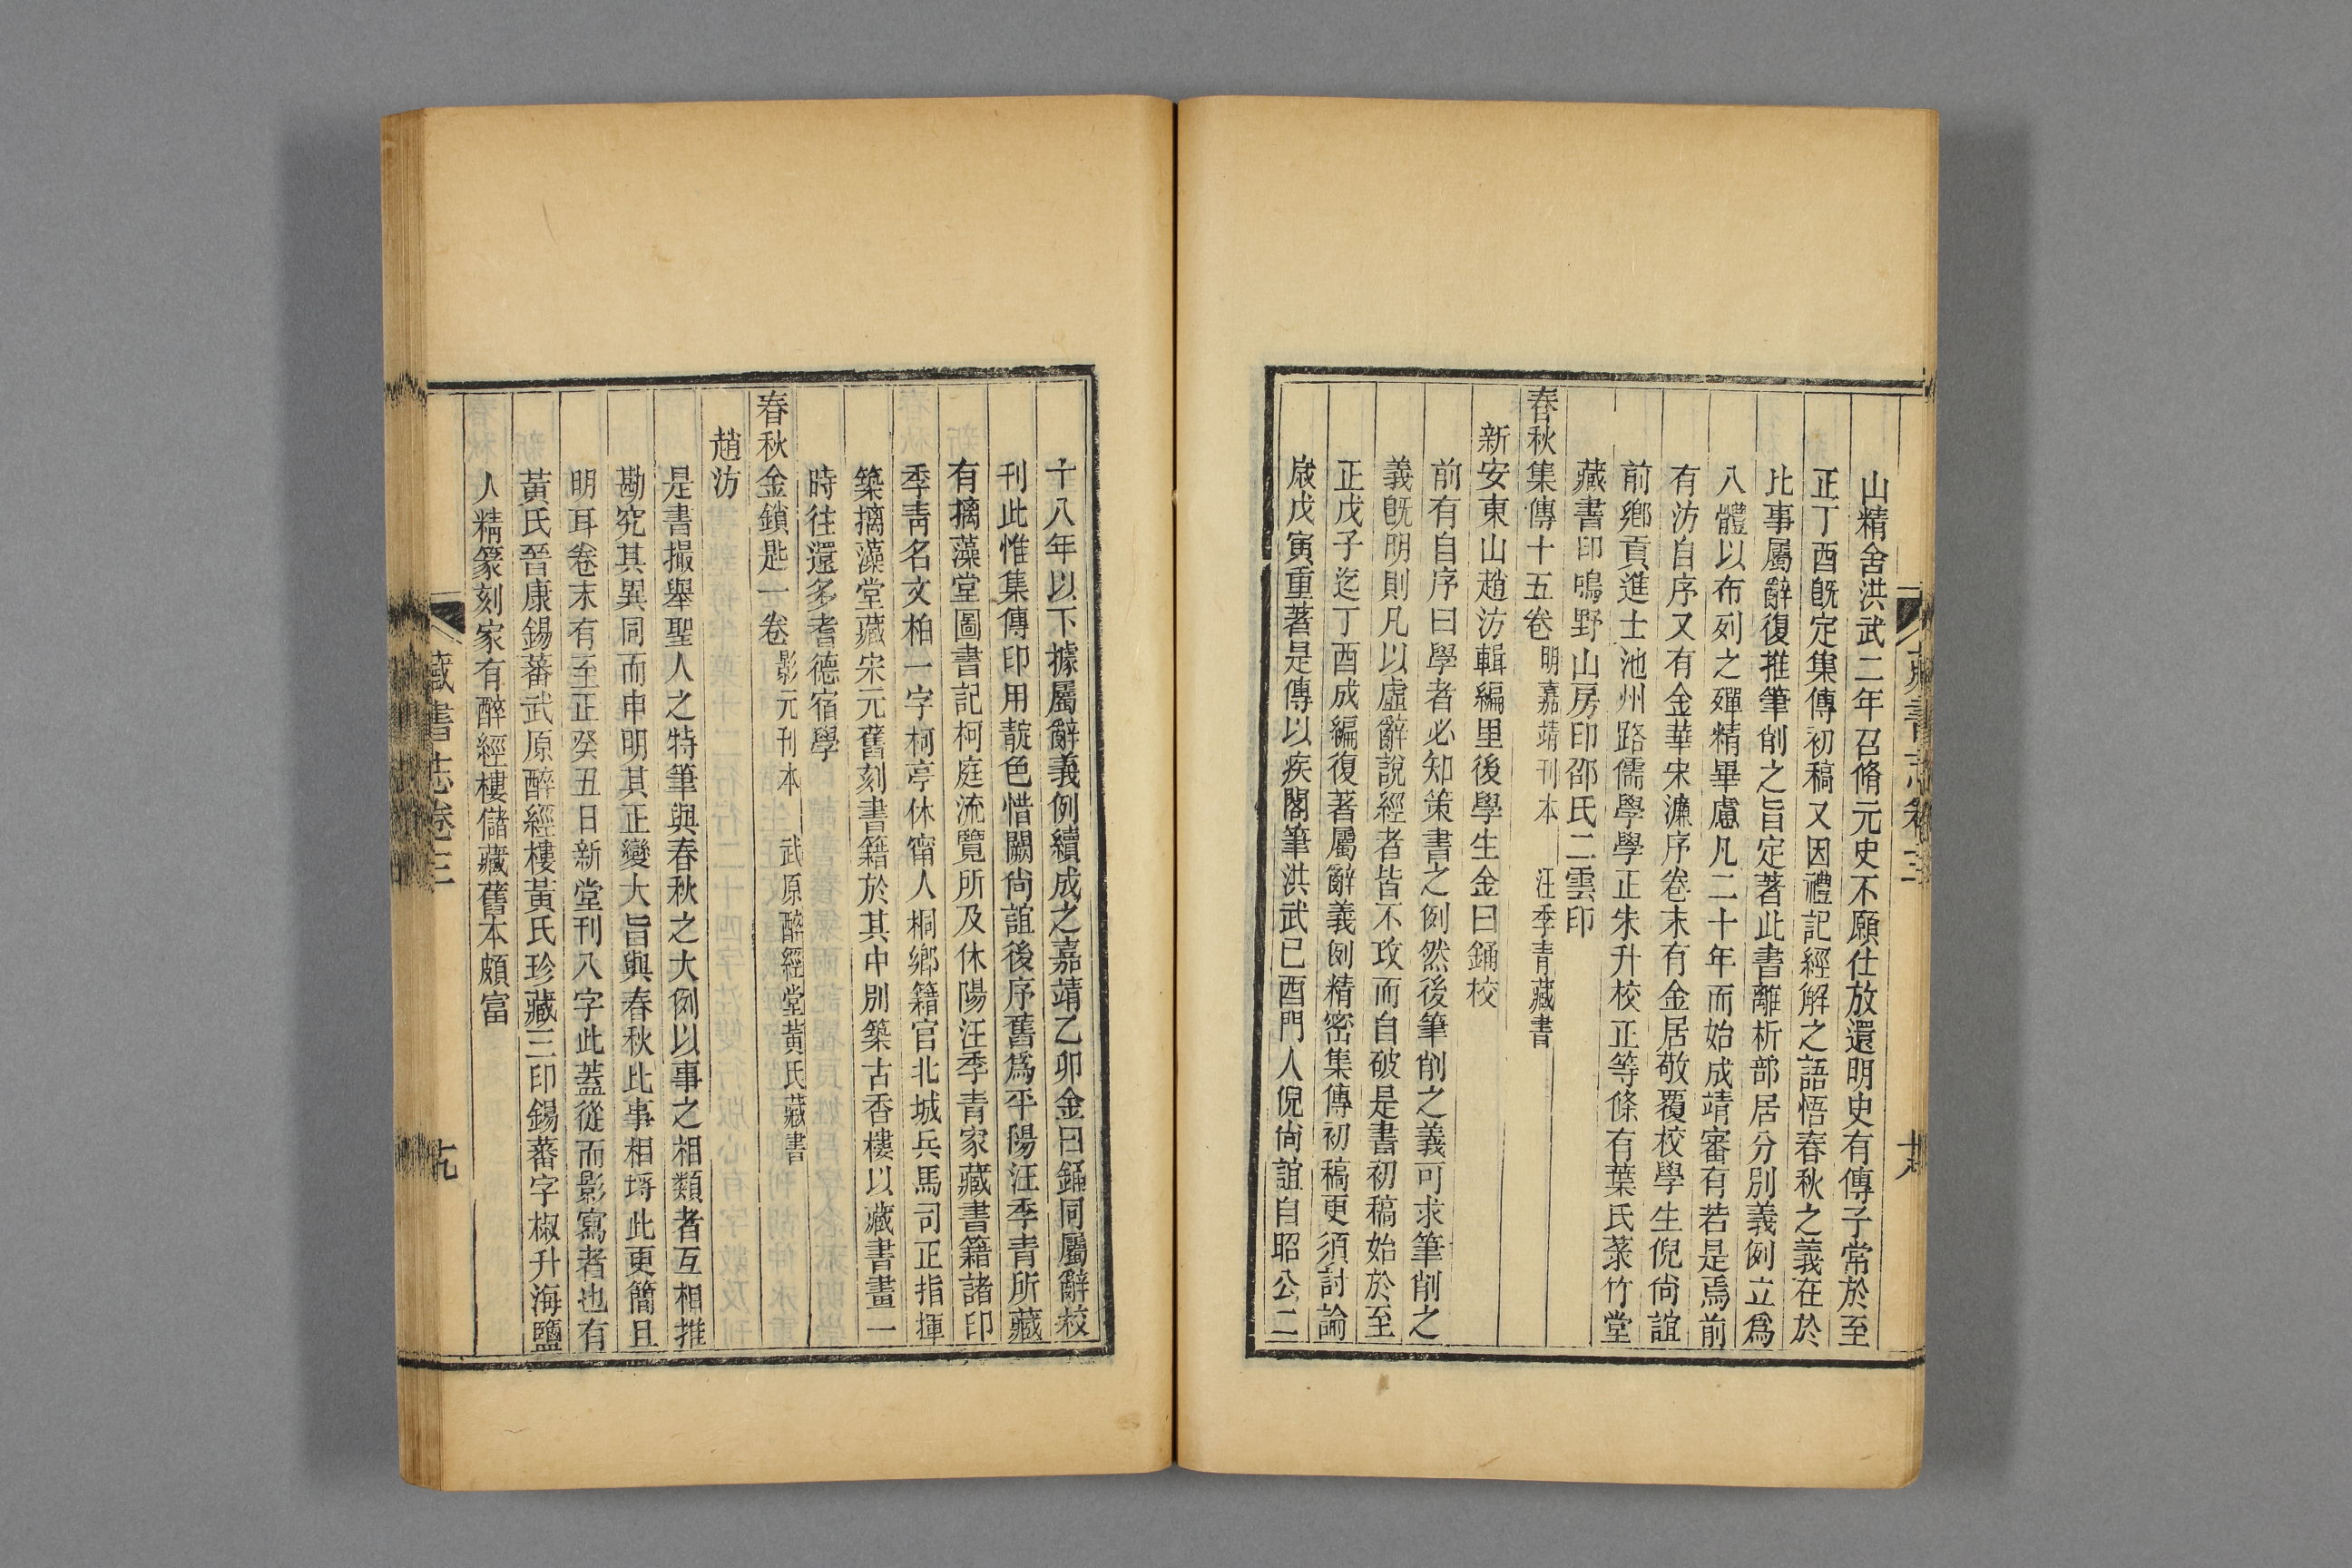 山精舍洪武二年召脩元史不願仕放還明史有傳子常於至
正丁酉旣定集傳初稿又因禮記經解之語悟春秋之義在於
比事屬辭復推筆削之旨定著此書離析部居分別義例立爲
八體以布列之殫精畢慮凡二十年而始成靖審有若是焉前
有汸自序又有金華宋濂序卷末有金居敬覆校學生倪尙誼
前鄉貢進士池州路儒學學正朱升校正等條有葉氏菉竹堂
藏書印鳴野山房印邵氏二雲印
春秋集傳十五卷 明嘉靖刊本 汪季青藏書
新安東山趙汸輯編里後學生金曰鋿校
前有自序曰學者必知策書之例然後筆削之義可求筆削之
義旣明則凡以虛辭說經者皆不攻而自破是書初稿始於至
正戊子迄丁酉成編復著屬辭義例精密集傳初稿更須討論
歲戊寅重著是傳以疾閣筆洪武己酉門人倪尙誼自昭公二
十八年以下據屬辭義例續成之嘉靖乙卯金曰鋿同屬辭校
刊此惟集傳印用靛色惜闕尙誼後序舊爲平陽汪季青所藏
有摛藻堂圖書記柯庭流覽所及休陽汪季青家藏書籍諸印
季青名文柏一字柯亭休甯人桐鄉籍官北城兵馬司正指揮
築摛藻堂藏宋元舊刻書籍於其中別築古香樓以藏書畫一
時往還多耆德宿學
春秋金鎖匙一卷 影元刊本 武原醉經堂黃氏藏書
趙汸
是書撮舉聖人之特筆與春秋之大例以事之相類者互相推
勘究其異同而申明其正變大旨與春秋比事相埒此更簡且
明耳卷末有至正癸丑日新堂刊八字此蓋從而影寫者也有
黃氏晉康錫蕃武原醉經樓黃氏珍藏三印錫蕃字椒升海鹽
人精篆刻家有醉經樓儲藏舊本頗富
藏書志卷三